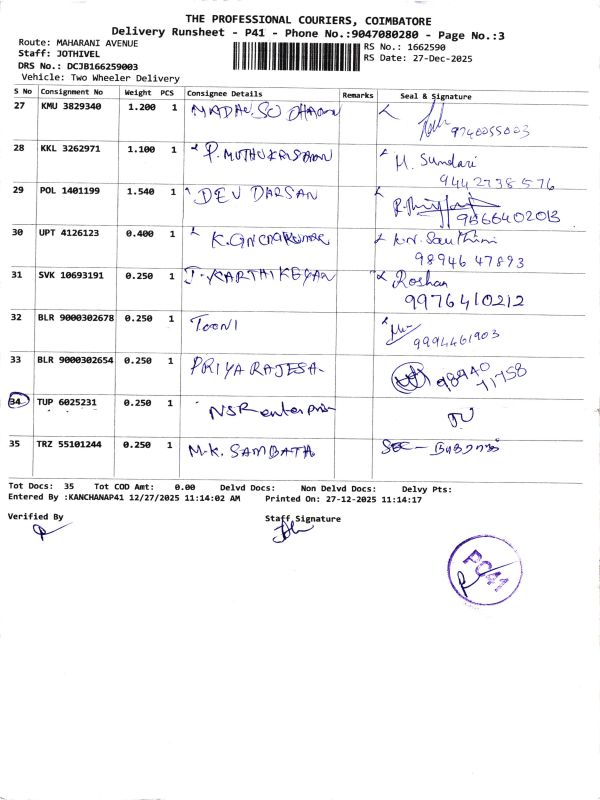 THE PROFESSIONAL COURIERS, COIMBATORE
Delivery Runsheet - P41 - Phone No.:9047080280 - Page No.:3
Route: MAHARANI AVENUE
Staff: JOTHIVEL
DRS No.: DCJB166259003
Vehicle: Two Wheeler Delivery
RS No.: 1662590
RS Date: 27-Dec-2025
S No Consignment No Weight PCS Consignee Details Remarks Seal & Signature
27 KMU 3829340 1.200 1 9740055003
28 KKL 3262971 1.100 1 P. MUTHUKRISHNAN M. Sundari
9442738576
29 POL 1401199 1.540 1 DEV DARSAN 9366402013
30 UPT 4126123 0.400 1
98946 47893
31 SVK 10693191 0.250 1 J. KARTHIKEYAN Roshan
9976410212
32 BLR 9000302678 0.250 1 TOONI
9994461903
33 BLR 9000302654 0.250 1 PRIYA RAJESA 98940
71758
34 TUP 6025231 0.250 1 NSR enterpris
35 TRZ 55101244 0.250 1 M.K. SAMBATH
Tot Docs: 35 Tot COD Amt: 0.00 Delvd Docs: Non Delvd Docs: Delvy Pts:
Entered By :KANCHANAP41 12/27/2025 11:14:02 AM Printed On: 27-12-2025 11:14:17
Verified By
Staff Signature
PC41